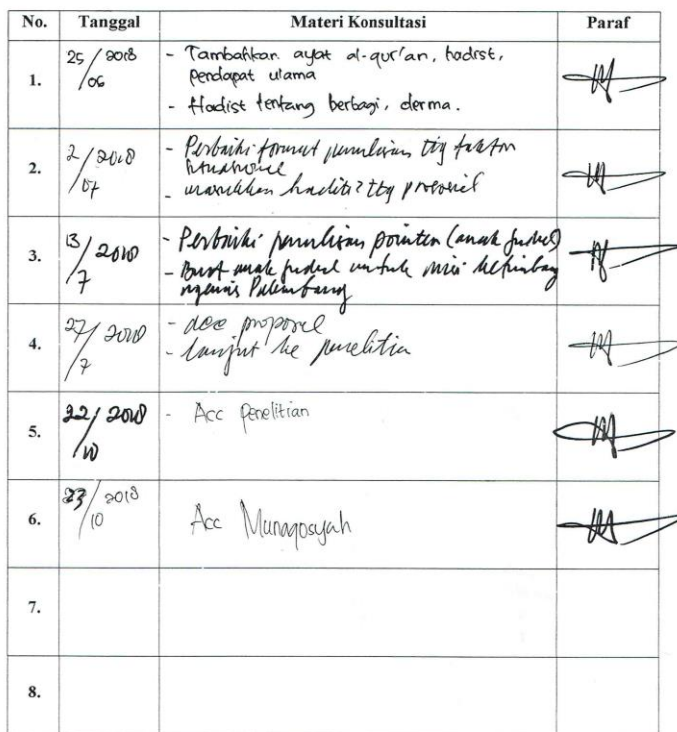 No. Tanggal Materi Konsultasi Paraf
1. 25/06 2018 - Tambahkan ayat al-qur'an, hadist,
pendapat ulama
- Hadist tentang berbagi, derma.
2. 2/07 2018 - Perbaiki format penulisan ttg faktor
situasional
- masukkan hadits2 ttg prososial
3. 13/7 2018 - Perbaiki penulisan pointer (anak judul)
- Buat anak judul untuk
Palembang
4. 27/7 2018 - acc proposal
- lanjut ke penelitian
5. 22/10 2018 - Acc Penelitian
6. 23/10 2018 Acc Munaqosyah
7.
8.